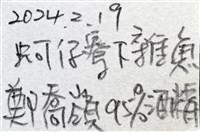 2024.2.19
蚵仔寮下雜魚
鄭喬頎 95%酒精